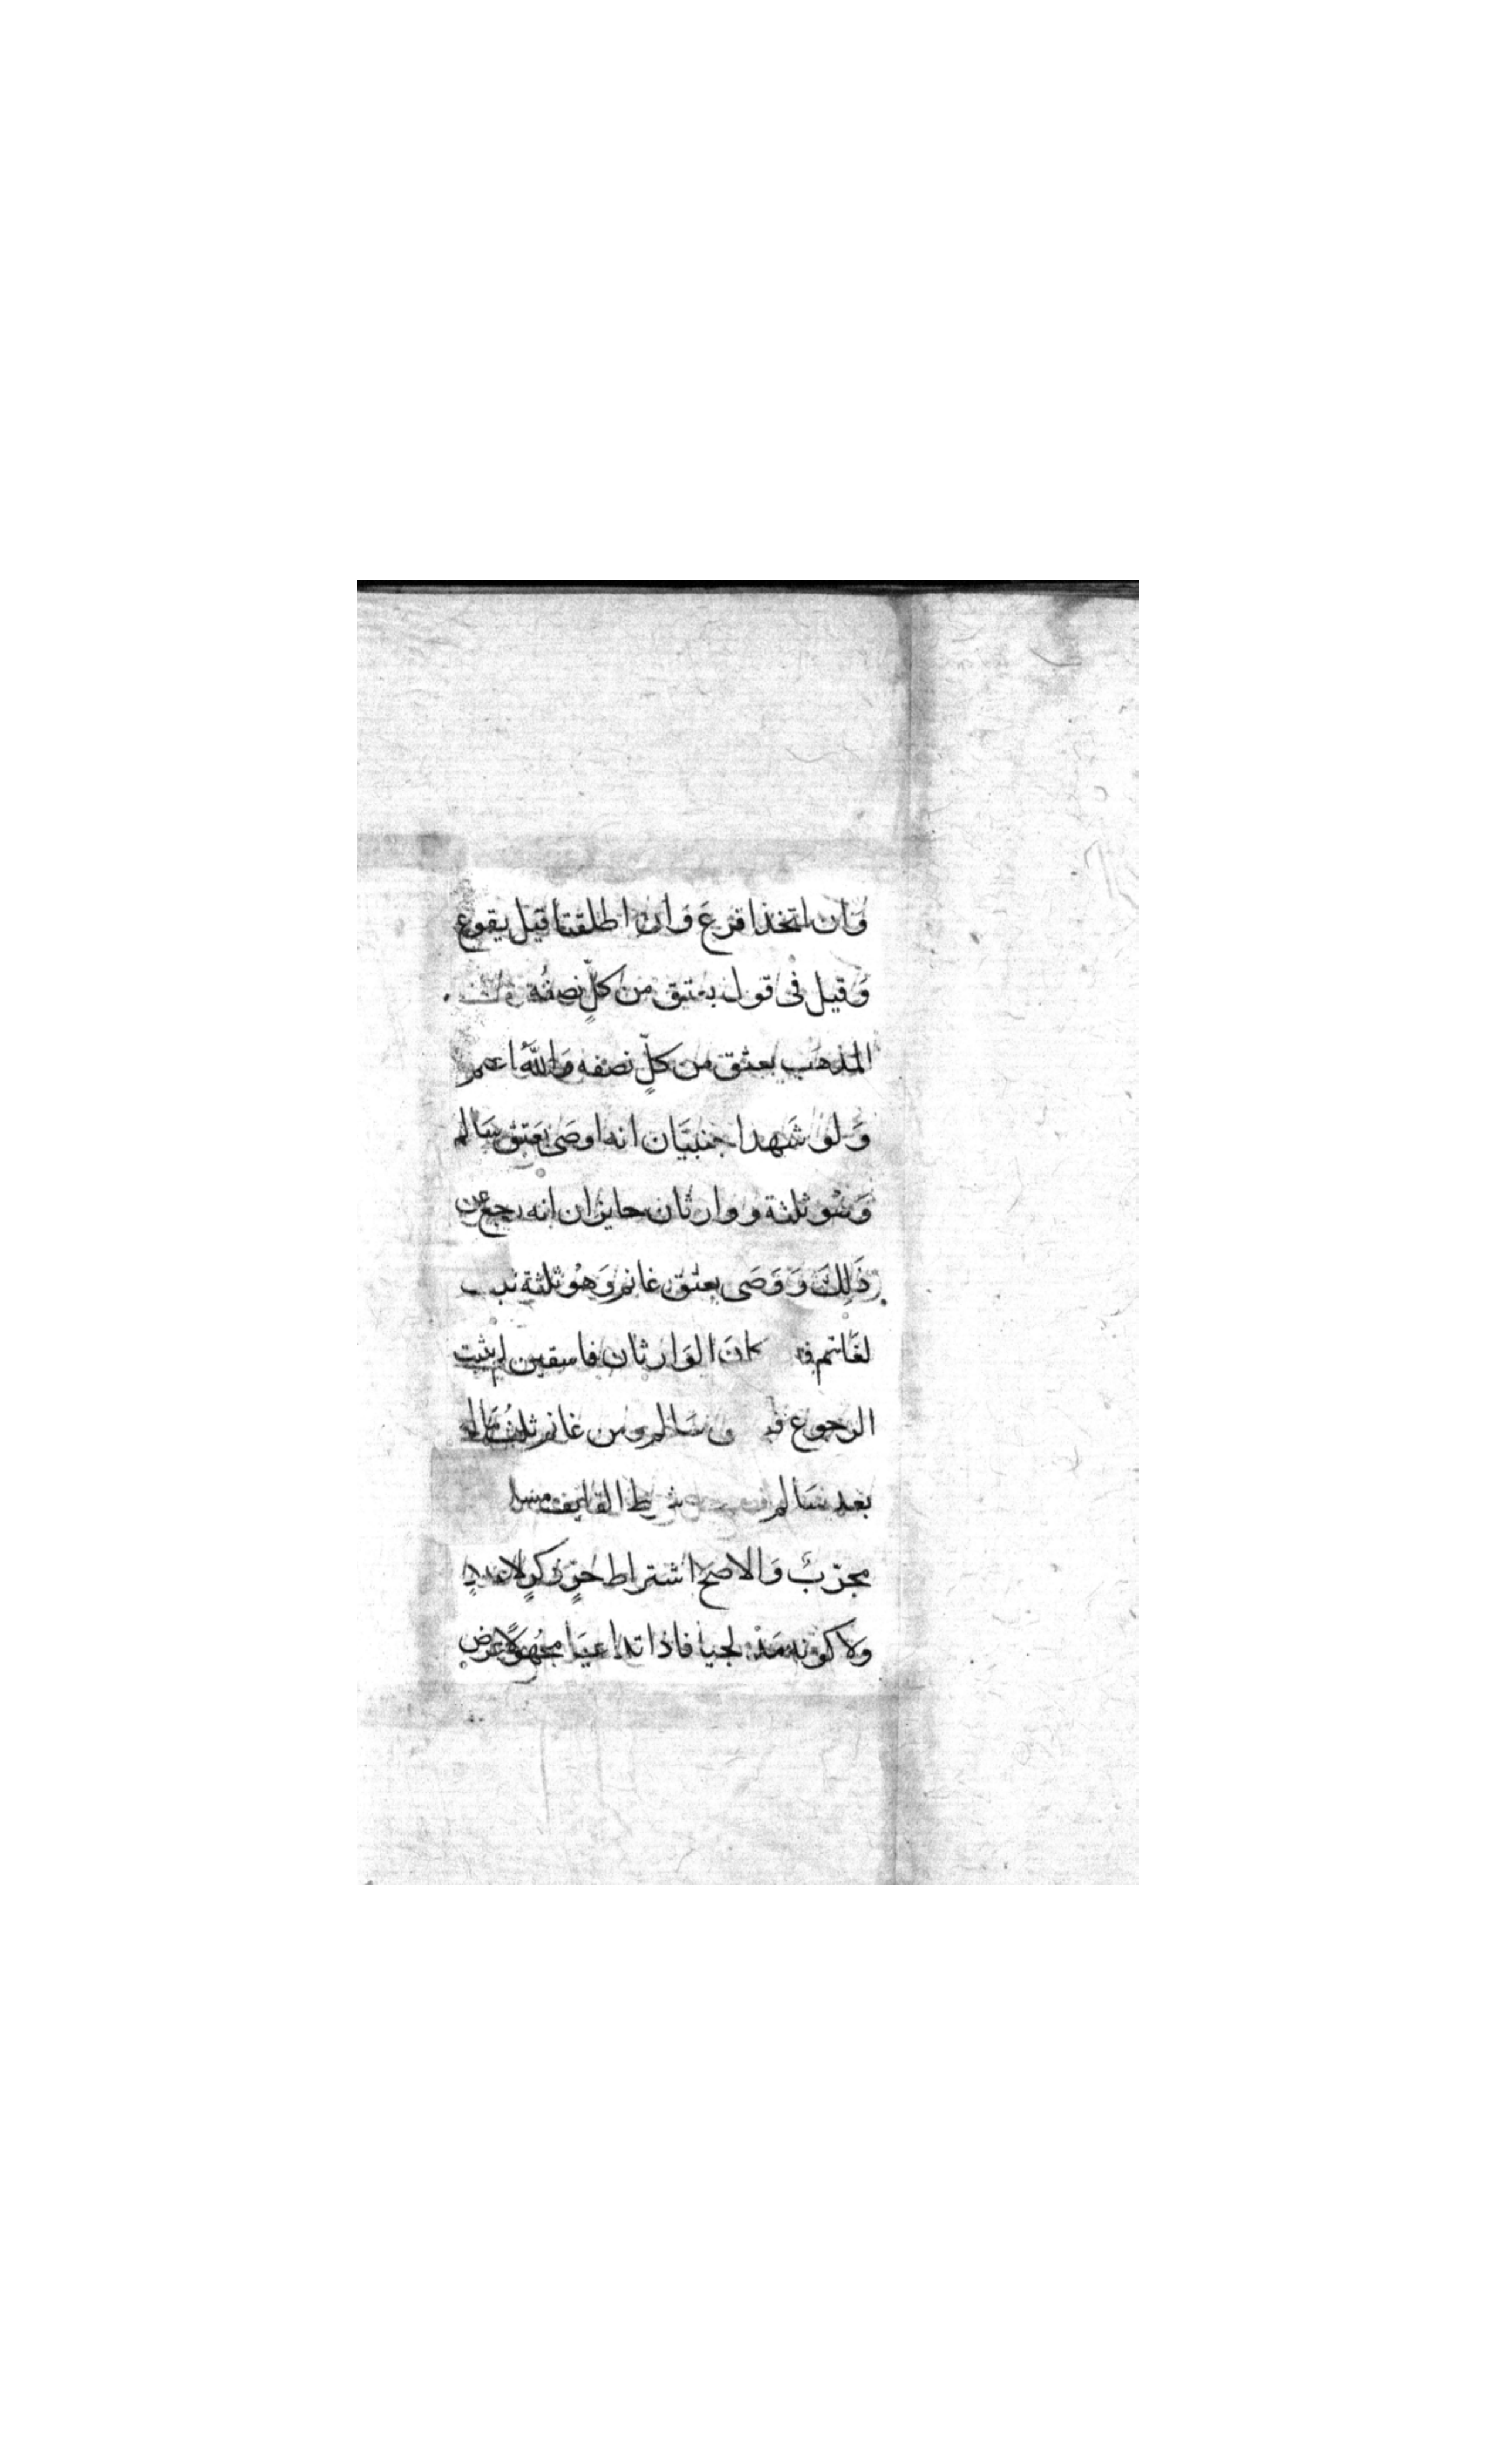 وَان اتخذا قرع وَان اطلقتا قيل يقرع
وَقيل فى قول يعتق من كلٍّ نصفُه قلت
المذهب يعتق من كلٍّ نصفه وَاللهُ اعلم
وَلو شَهد اجنبيَان انه اوصَى بعَتق سَالم
وَهُو ثلثة و وارثان حايزان انه رجع عن
ذَلِكَ وَوَصَى بعتق غانم وَهُو ثلثة ثبت
لغَانم فا كانَ الوَارثان فاسقين لم يثبت
الرجوع في سَالم ومن غانم ثلث مَاله
بعد سَالم شرط القايف مسلم
مجرّبٌ وَالاصحّ اشتراط حرٍّ ذكرٍ لا عددٍ
ولا كونه مدلجيا فاذا تداعيَا مجهُولًا عرض